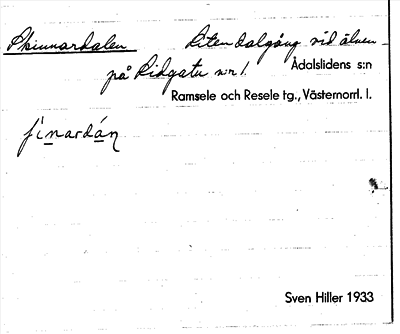 Skinnardalen Liten dalgång vid älven
på Lidgatu nr 1. Ådalslidens s:n
Ramsele och Resele tg., Västernorrl. l.
ʃinardáɳ
Sven Hiller 1933